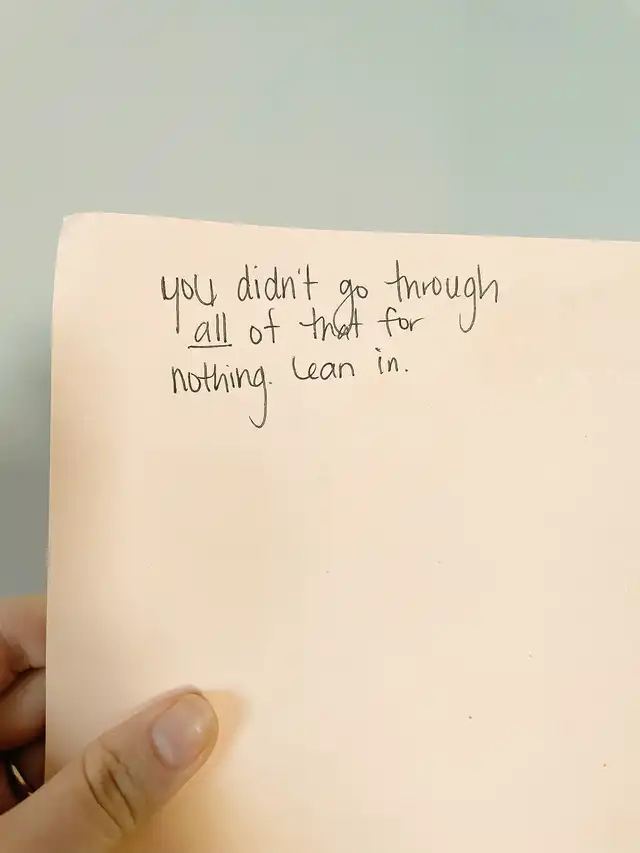 you didn't go through
all of that for
nothing. Lean in.